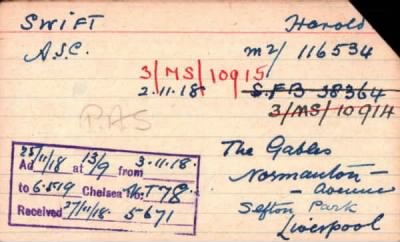 SWIFT Harold
A.S.C. M2/ 116534
3/MS/10915
2.11.18. S.F.B 38364
3/MS/10914
P.AS
The Gables
Normanton-
-Avenue
Sefton Park
Liverpool
25/11/18 13/9 3.11.18.
Ad at from
to 6.5.19 Chelsea No. T78
Received 27/11/18. 5671